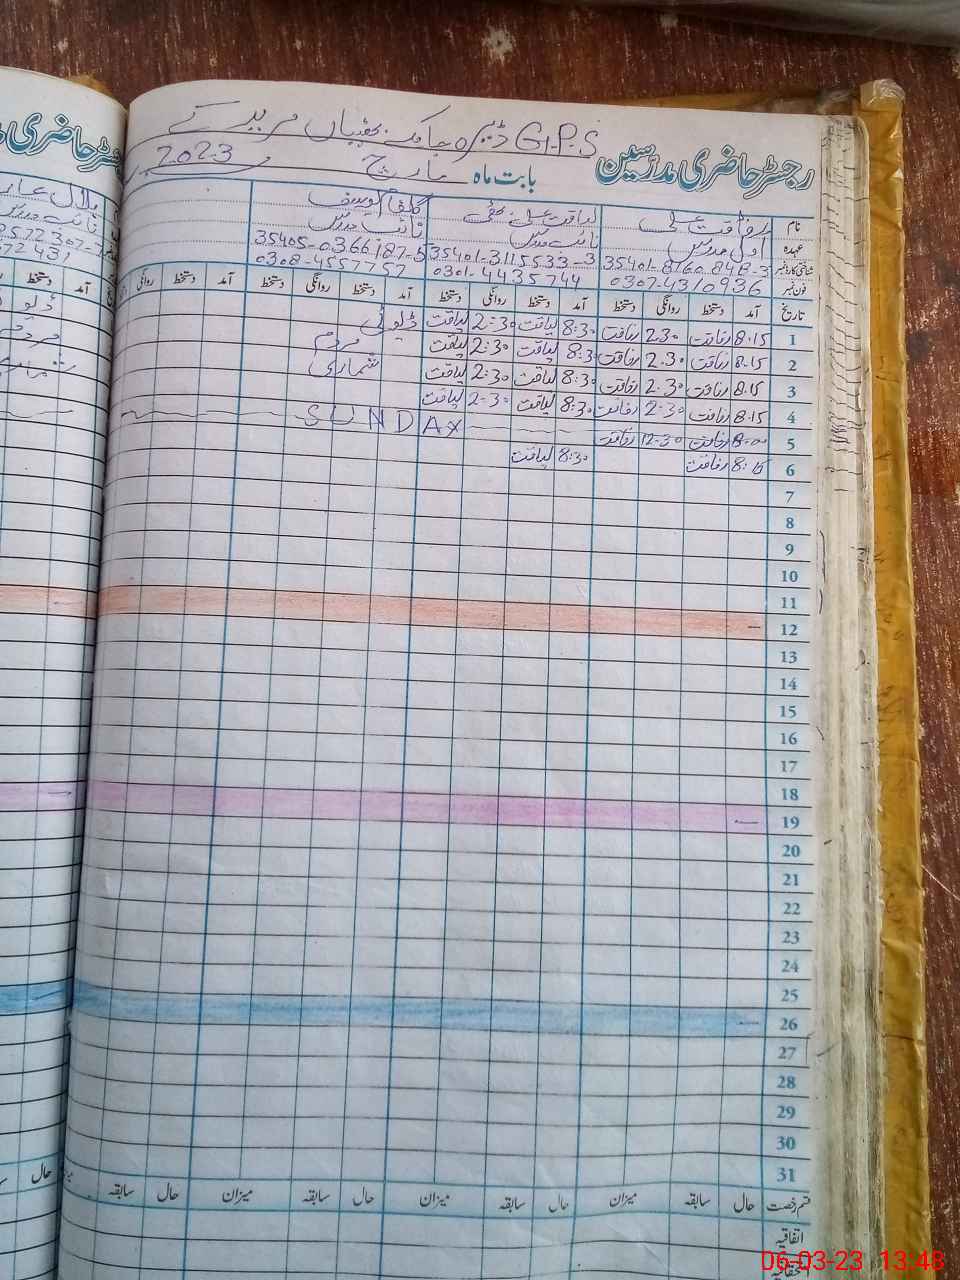 G.P.S ڈیرہ چاکے بھٹیاں مریدکے
رجسٹر حاضری مدرّسین بابت ماہ مارچ 2023
نام رفاقت علی لیاقت علی بھٹی
عہدہ اول مدرس نائب مدرس نائب مدرس
شناختی کارڈ نمبر 35401-8160848-3 35401-3115533-3 35405-0366187-5
فون نمبر 0307-4310936 0301-4435744 0308-4557757
تاریخ آمد دستخط روانگی دستخط آمد دستخط روانگی دستخط آمد دستخط روانگی دستخط آمد دستخط روانگی
1 8.15 رفاقت 2.30 رفاقت 8:30 لیاقت 2:30 لیاقت ڈیوٹی
2 8.15 رفاقت 2.30 رفاقت 8:30 لیاقت 2:30 لیاقت مردم
3 8.15 رفاقت 2.30 رفاقت 8:30 لیاقت 2:30 لیاقت شماری
4 8.15 رفاقت 2:30 رفاقت 8:30 لیاقت 2:30 لیاقت
5 8.00 رفاقت 12.30 رفاقت SUNDAY
6 8:15 رفاقت 8:30 لیاقت
7
8
9
10
11
12
13
14
15
16
17
18
19
20
21
22
23
24
25
26
27
28
29
30
31
قسم رخصت حال سابقہ میزان حال سابقہ میزان حال سابقہ میزان حال سابقہ
اتفاقیہ
06-03-23 13:48